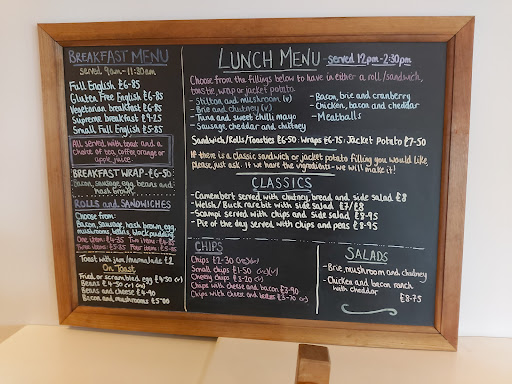 BREAKFAST MENU
served 9am-11:30am
Full English £6-85
Gluten Free English £6-85
Vegetarian breakfast £6-85
Supreme breakfast £9-25
Small Full English £5-85
All served with toast and a
choice of tea, coffee, orange or
apple juice.
BREAKFAST WRAP - £6-50:
Bacon, sausage, egg, beans and
hash brown.
ROLLS AND SANDWICHES
Choose from:
Bacon, sausage, hash brown, egg,
mushrooms, beans, black pudding
One item: £4-35 Two items:
Three items: £5-35 Four items:
Toast with jam/marmalade £2
On Toast
Fried or scrambled egg £4-50 (v)
Beans £4-50 (v)
Beans and cheese £4-90
Bacon and mushrooms £5-00
LUNCH MENU - served 12pm-2:30pm
Choose from the fillings below to have in either a roll/sandwich,
toastie, wrap or jacket potato.
- Stilton and mushroom (v)
- Brie and chutney (v)
- Tuna and sweet chilli mayo
- Sausage, cheddar and chutney
- Bacon, brie and cranberry
- Chicken, bacon and cheddar
- Meatballs
Sandwich/Rolls/Toasties £6-50: Wraps £6-75: Jacket Potato £7-50
If there is a classic sandwich or jacket potato filling you would like,
please just ask. If we have the ingredients - we will make it!
CLASSICS
- Camembert served with chutney, bread and side salad £8
- Welsh/Buck rarebit with side salad £7/£8
- Scampi served with chips and side salad £8-95
- Pie of the day served with chips and peas £8-95
CHIPS
Chips £2-30
Small chips £1-50
Cheesy chips £3-20 (v)
Chips with cheese and bacon £3-90
Chips with cheese and beans £3-70
SALADS
- Brie, mushroom and chutney
- Chicken and bacon ranch
with cheddar
£8-75